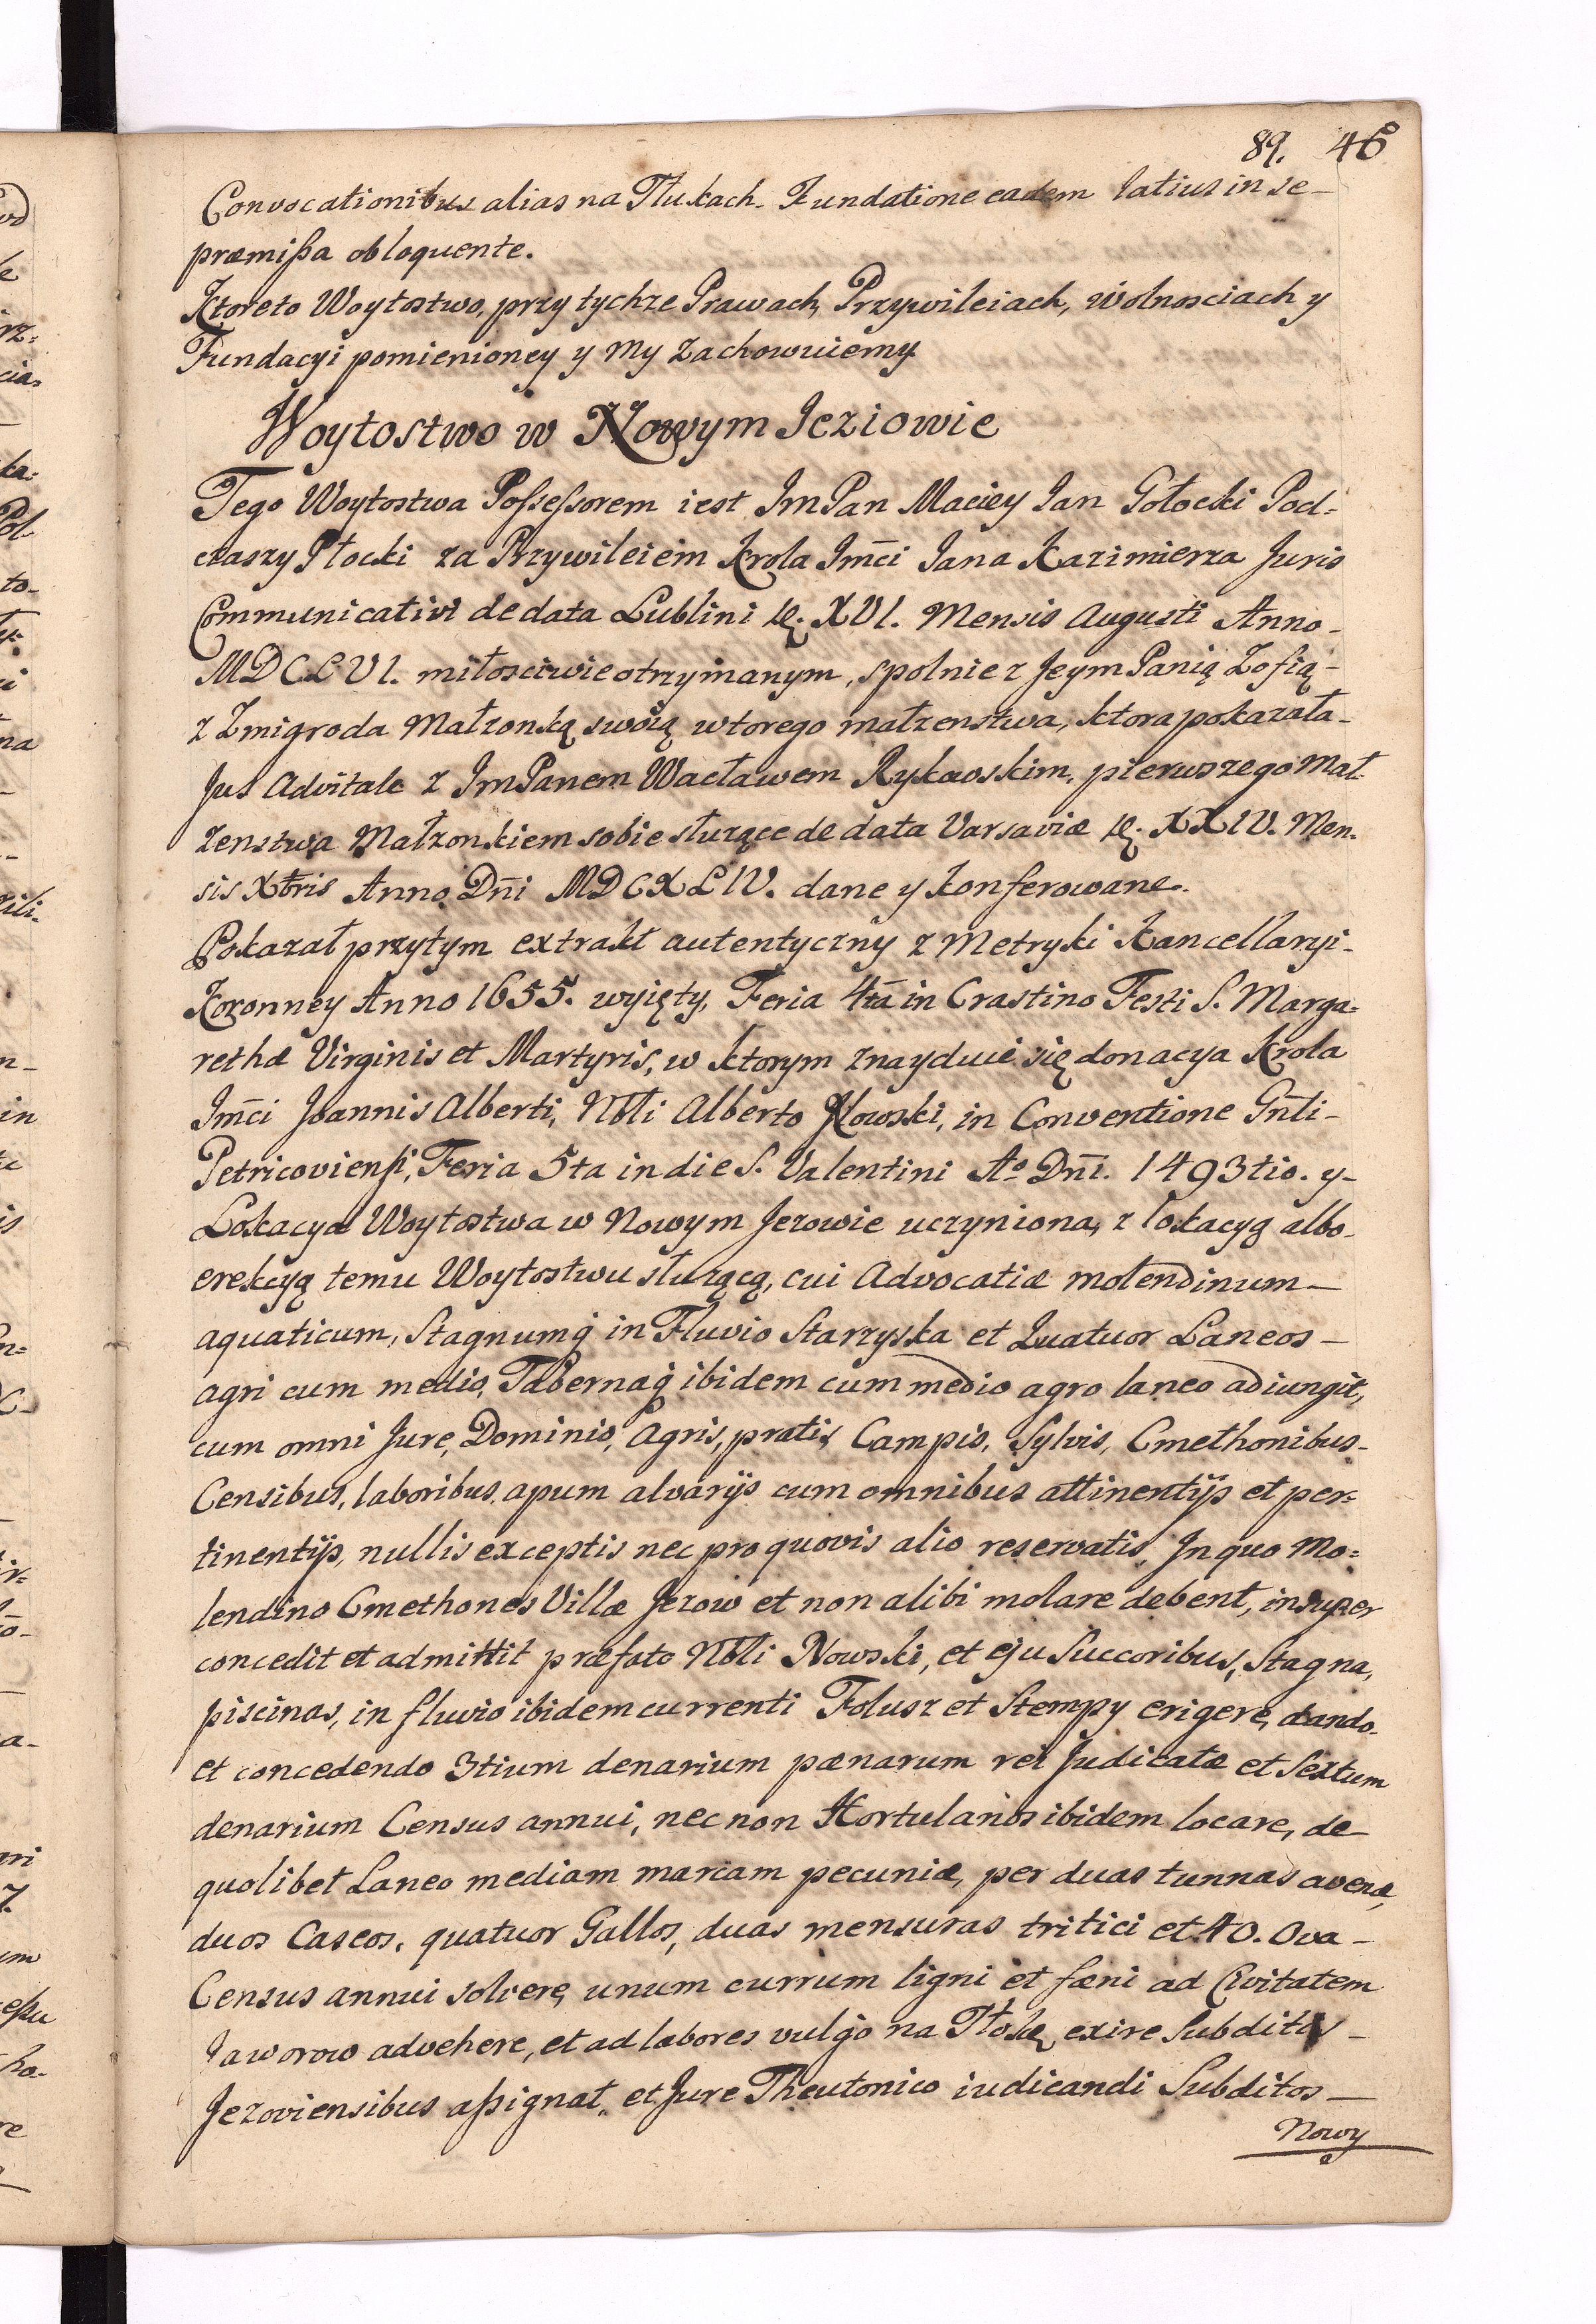 89. 46
Convocationibus alias na Tłukach. Fundatione eadem latius in se-
præmißa obloquente.
Ktoreto Woytostwo, przy tychże Prawach, Przywileiach, wolnosciach y
Fundacyi pomienioney y my zachowuiemy
Woytostwo w Nowym Jeziowie
Tego Woytostwa Poßeßorem iest ImPan Maciey Jan Gołocki Pod-
czaszy Płocki za Przywileiem Krola Jm̄ci Jana Kazimierza Juris
Communicativi de data Lublini XVI. Mensis Augusti Anno-
MDCLVI. miłosciwie otrzymanym, spolnie z Jeym Panią Zofią-
z Zmigroda Małzonką swoią wtorego małzenstwa, ktora pokazała-
Jus Advitale z ImPanem Wacławem Rykowskim, pierwszego Mał-
zenstwa Małzonkiem sobie służące de data Varsaviæ XXIV. Men-
sis Xbris Anno Dn̄i MDCXLIV. dane y konferowane.
Pokazał przytym extrakt autentyczny z Metryki Kancellaryi-
Koronney Anno 1655. wyięty, Feria 4ta in Crastino Festi S. Marga=
rethæ Virginis et Martyris, w ktorym znayduie się donacya Krola
Jm̄ci Joannis Alberti, Nbli Alberto Nowski, in Conventione Gn̄li-
Petricoviensi, Feria 5ta in die S. Valentini Ao Dn̄i. 1493tio. y-
Lokacya Woytostwa w Nowym Jezowie uczyniona, z lokacyą albo-
erekcyą temu Woytostwu służącą, cui Advocatiæ molendinum-
aquaticum, Stagnumq in Fluvio Starzyska et Quatuor Laneos-
agri cum medio, Tabernaq ibidem cum medio agro laneo adiungit,
cum omni Jure, Dominio, Agris, pratis, Campis, Sylvis, Cmethonibus-
Censibus, laboribus, apum alvarijs cum omnibus attinentijs et per=
tinentijs, nullis exceptis nec pro quovis alio reservatis, In quo Mo=
lendino Cmethones Villæ Jezow et non alibi molare debent, insuper
concedit et admittit præfato Nbli Nowski, et eju Succoribus, Stagna,
piscinas, in fluvio ibidem currenti Folusz et Stempy erigere, dando-
et concedendo 3tium denarium pænarum rei Judicatæ et Sextum
denarium Census annui, nec non Hortulanos ibidem locare, de-
quolibet Laneo mediam marcam pecuniæ, per duas tunnas avenæ,
duos Caseos, quatuor Gallos, duas mensuras tritici et 40. Ova-
Census annui solvere, unum currum ligni et fæni ad Civitatem
Jaworow advehere, et ad labores vulgo na Tłokę exire Subditis-
Jezoviensibus aßignat, et Jure Theutonico iudicandi Subditos-
Nowy